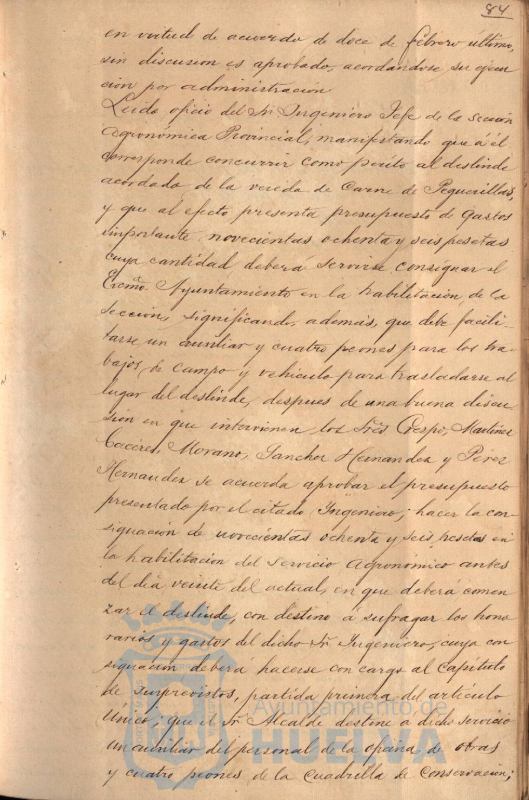 84
en virtud de acuerdo de doce de febrero ultimo,
sin discusion es aprobado, acordandose su ejecu
cion por administracion
Leido oficio del Sr Ingeniero Jefe de la Sección
Agronómica Provincial, manifestando que á él
corresponde concurrir como perito al deslinde
acordado de la vereda de Carne de Peguerillas,
y que al efecto presenta presupuesto de gastos
importante novecientas ochenta y seis pesetas
cuya cantidad deberá servirse consignar el
Excmo. Ayuntamiento en la habilitación de la
Sección, significando, además, que debe facili-
tarse un auxiliar y cuatro peones para los tra-
bajos de campo y vehiculo para trasladarse al
lugar del deslinde, despues de una buena discu
sión en que intervienen los Sres Crespo, Martinez
Caceres, Morano, Sanchez Hernandez y Perez
Hernandez se acuerda aprobar el presupuesto
presentado por el citado Ingeniero; hacer la con-
signación de novecientas ochenta y seis pesetas en
la habilitación del Servicio Agronómico antes
del dia veinte del actual, en que deberá comen
zar el deslinde, con destino á sufragar los hono
rarios y gastos del dicho Sr Ingeniero, cuya con
signación deberá hacerse con cargo al Capitulo
de Imprevistos, partida primera del articulo
Unico; que el Sr Alcalde destine á dicho servicio
un auxiliar del personal de la oficina de obras
y cuatro peones de la Cuadrilla de Conservación;
Ayuntamiento de
HUELVA